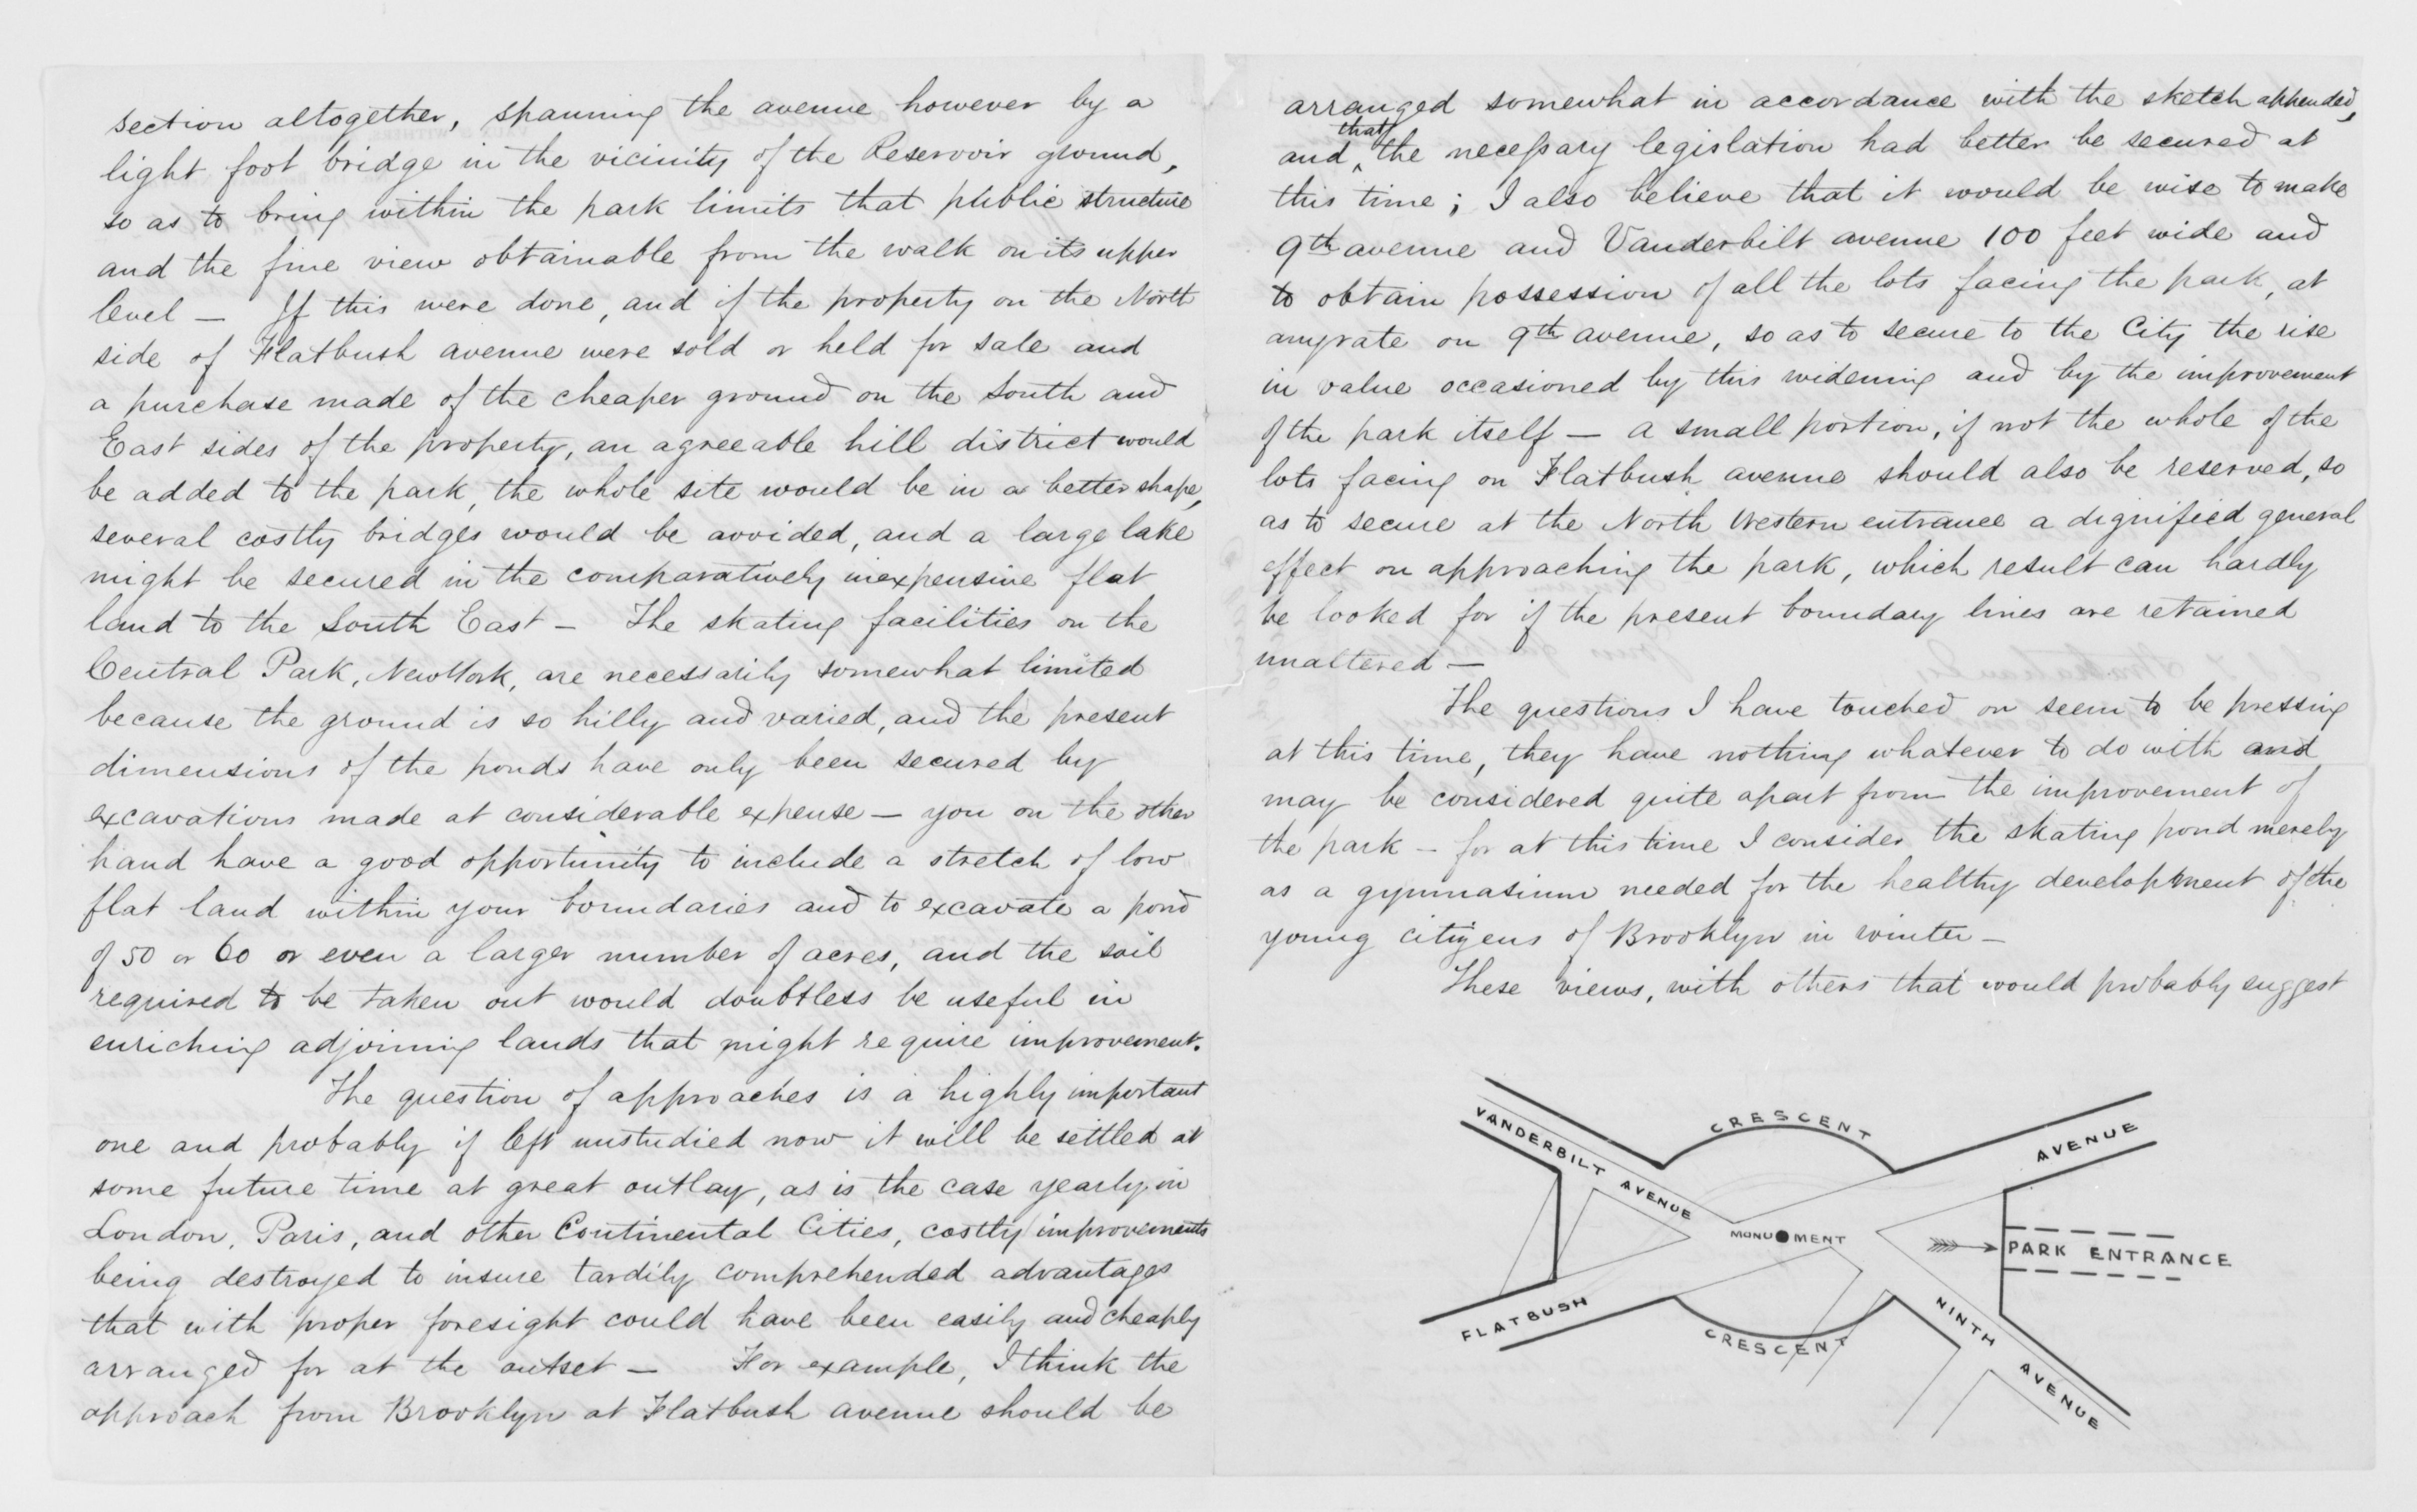 section altogether, spanning the avenue however by a
light foot bridge in the vicinity of the Reservoir ground,
so as to bring within the park limits that public structure
and the fine view obtainable from the walk on its upper
level — If this were done, and if the property on the North
side of Flatbush avenue were sold or held for sale and
a purchase made of the cheaper ground on the South and
East sides of the property, an agreeable hill district would
be added to the park, the whole site would be in a better shape,
several costly bridges would be avoided, and a large lake
might be secured in the comparatively inexpensive flat
land to the South East — The skating facilities on the
Central Park, New York, are necessarily somewhat limited
because the ground is so hilly and varied, and the present
dimensions of the ponds have only been secured by
excavations made at considerable expense — you on the other
hand have a good opportunity to include a stretch of low
flat land within your boundaries and to excavate a pond
of 50 or 60 or even a larger number of acres, and the soil
required to be taken out would doubtless be useful in
enriching adjoining lands that might require improvement.
The question of approaches is a highly important
one and probably if left unstudied now it will be settled at
some future time at great outlay, as is the case yearly in
London, Paris, and other Continental Cities, costly improvements
being destroyed to insure tardily comprehended advantages
that with proper foresight could have been easily and cheaply
arranged for at the outset — For example, I think the
approach from Brooklyn at Flatbush avenue should be
arranged somewhat in accordance with the sketch appended,
and that the necessary legislation had better be secured at
this time; I also believe that it would be wise to make
9th avenue and Vanderbilt avenue 100 feet wide and
to obtain possession of all the lots facing the park, at
anyrate on 9th avenue, so as to secure to the City the rise
in value occasioned by this widening and by the improvement
of the park itself — a small portion, if not the whole of the
lots facing on Flatbush avenue should also be reserved, so
as to secure at the North Western entrance a dignified general
effect on approaching the park, which result can hardly
be looked for if the present boundary lines are retained
unaltered —
The questions I have touched on seem to be pressing
at this time, they have nothing whatever to do with and
may be considered quite apart from the improvement of
the park — for at this time I consider the skating pond merely
as a gymnasium needed for the healthy development of the
young citizens of Brooklyn in winter —
These views, with others that would probably suggest
CRESCENT
VANDERBILT AVENUE
AVENUE
MONUMENT
PARK ENTRANCE
FLATBUSH
CRESCENT
NINTH AVENUE